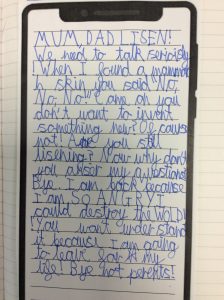 MUM DAD LISEN!
We need to talk seriously
! When I found a mammot
h skin you said No,
No, No are oh you
don't want to invent
something new? Of cause
not! Are you still
lisening? Now why don't
you anser my questions
Bye. I am back because
I am SO ANGRY I
could destroy the WOLD!
You want understand
it because I am going
to leave for in my
life! Bye not parents!